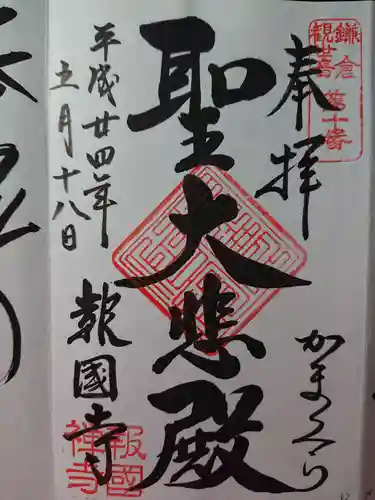 鎌倉
観音
第十番
奉拝
かまくら
聖大悲殿
平成廿四年
五月十八日
報國寺
報國
禅寺